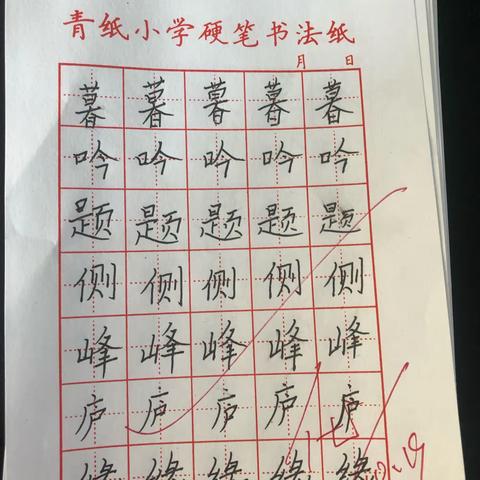 青纸小学硬笔书法纸
月 日
暮 暮 暮 暮 暮
吟 吟 吟 吟 吟
题 题 题 题 题
侧 侧 侧 侧 侧
峰 峰 峰 峰 峰
庐 庐 庐 庐 庐
缘 缘 缘 缘 缘